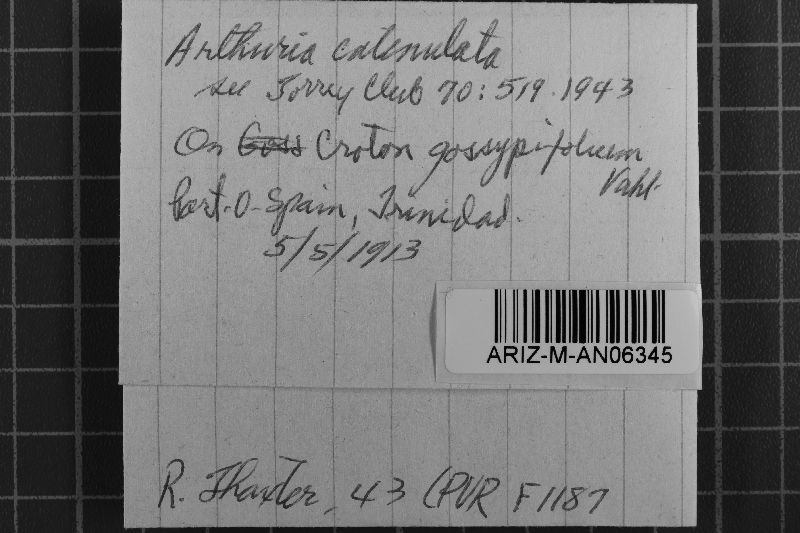 Arthuria catenulata
see Torrey Club 70: 519. 1943
On Goss Croton gossypifolium
Vahl.
Port-O-Spain, Trinidad.
5/5/1913
ARIZ-M-AN06345
R. Thaxter, 43 (PUR F1187